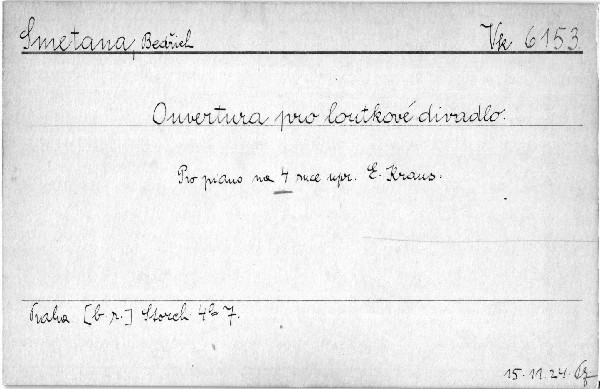 Smetana, Bedřich Vk 6153
Ouvertura pro loutkové divadlo.
Pro piano na 4 ruce upr. E. Kraus.
Praha [b r.] Storch 4° 7.
15.11.24.